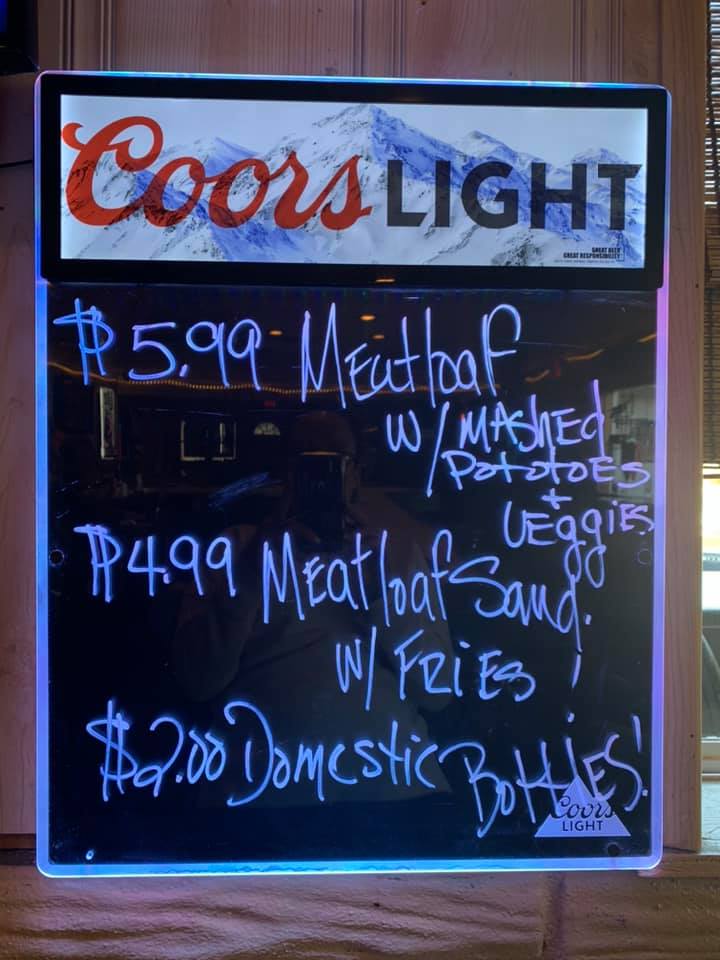 Coors LIGHT
GREAT BEER
GREAT RESPONSIBILITY
$5.99 Meatloaf
w/ MAShEd
PotatoES
+
VEggiES
$4.99 Meatloaf Sand.
W/ FRiES !
$2.00 Domestic BottlES!
Coors
LIGHT